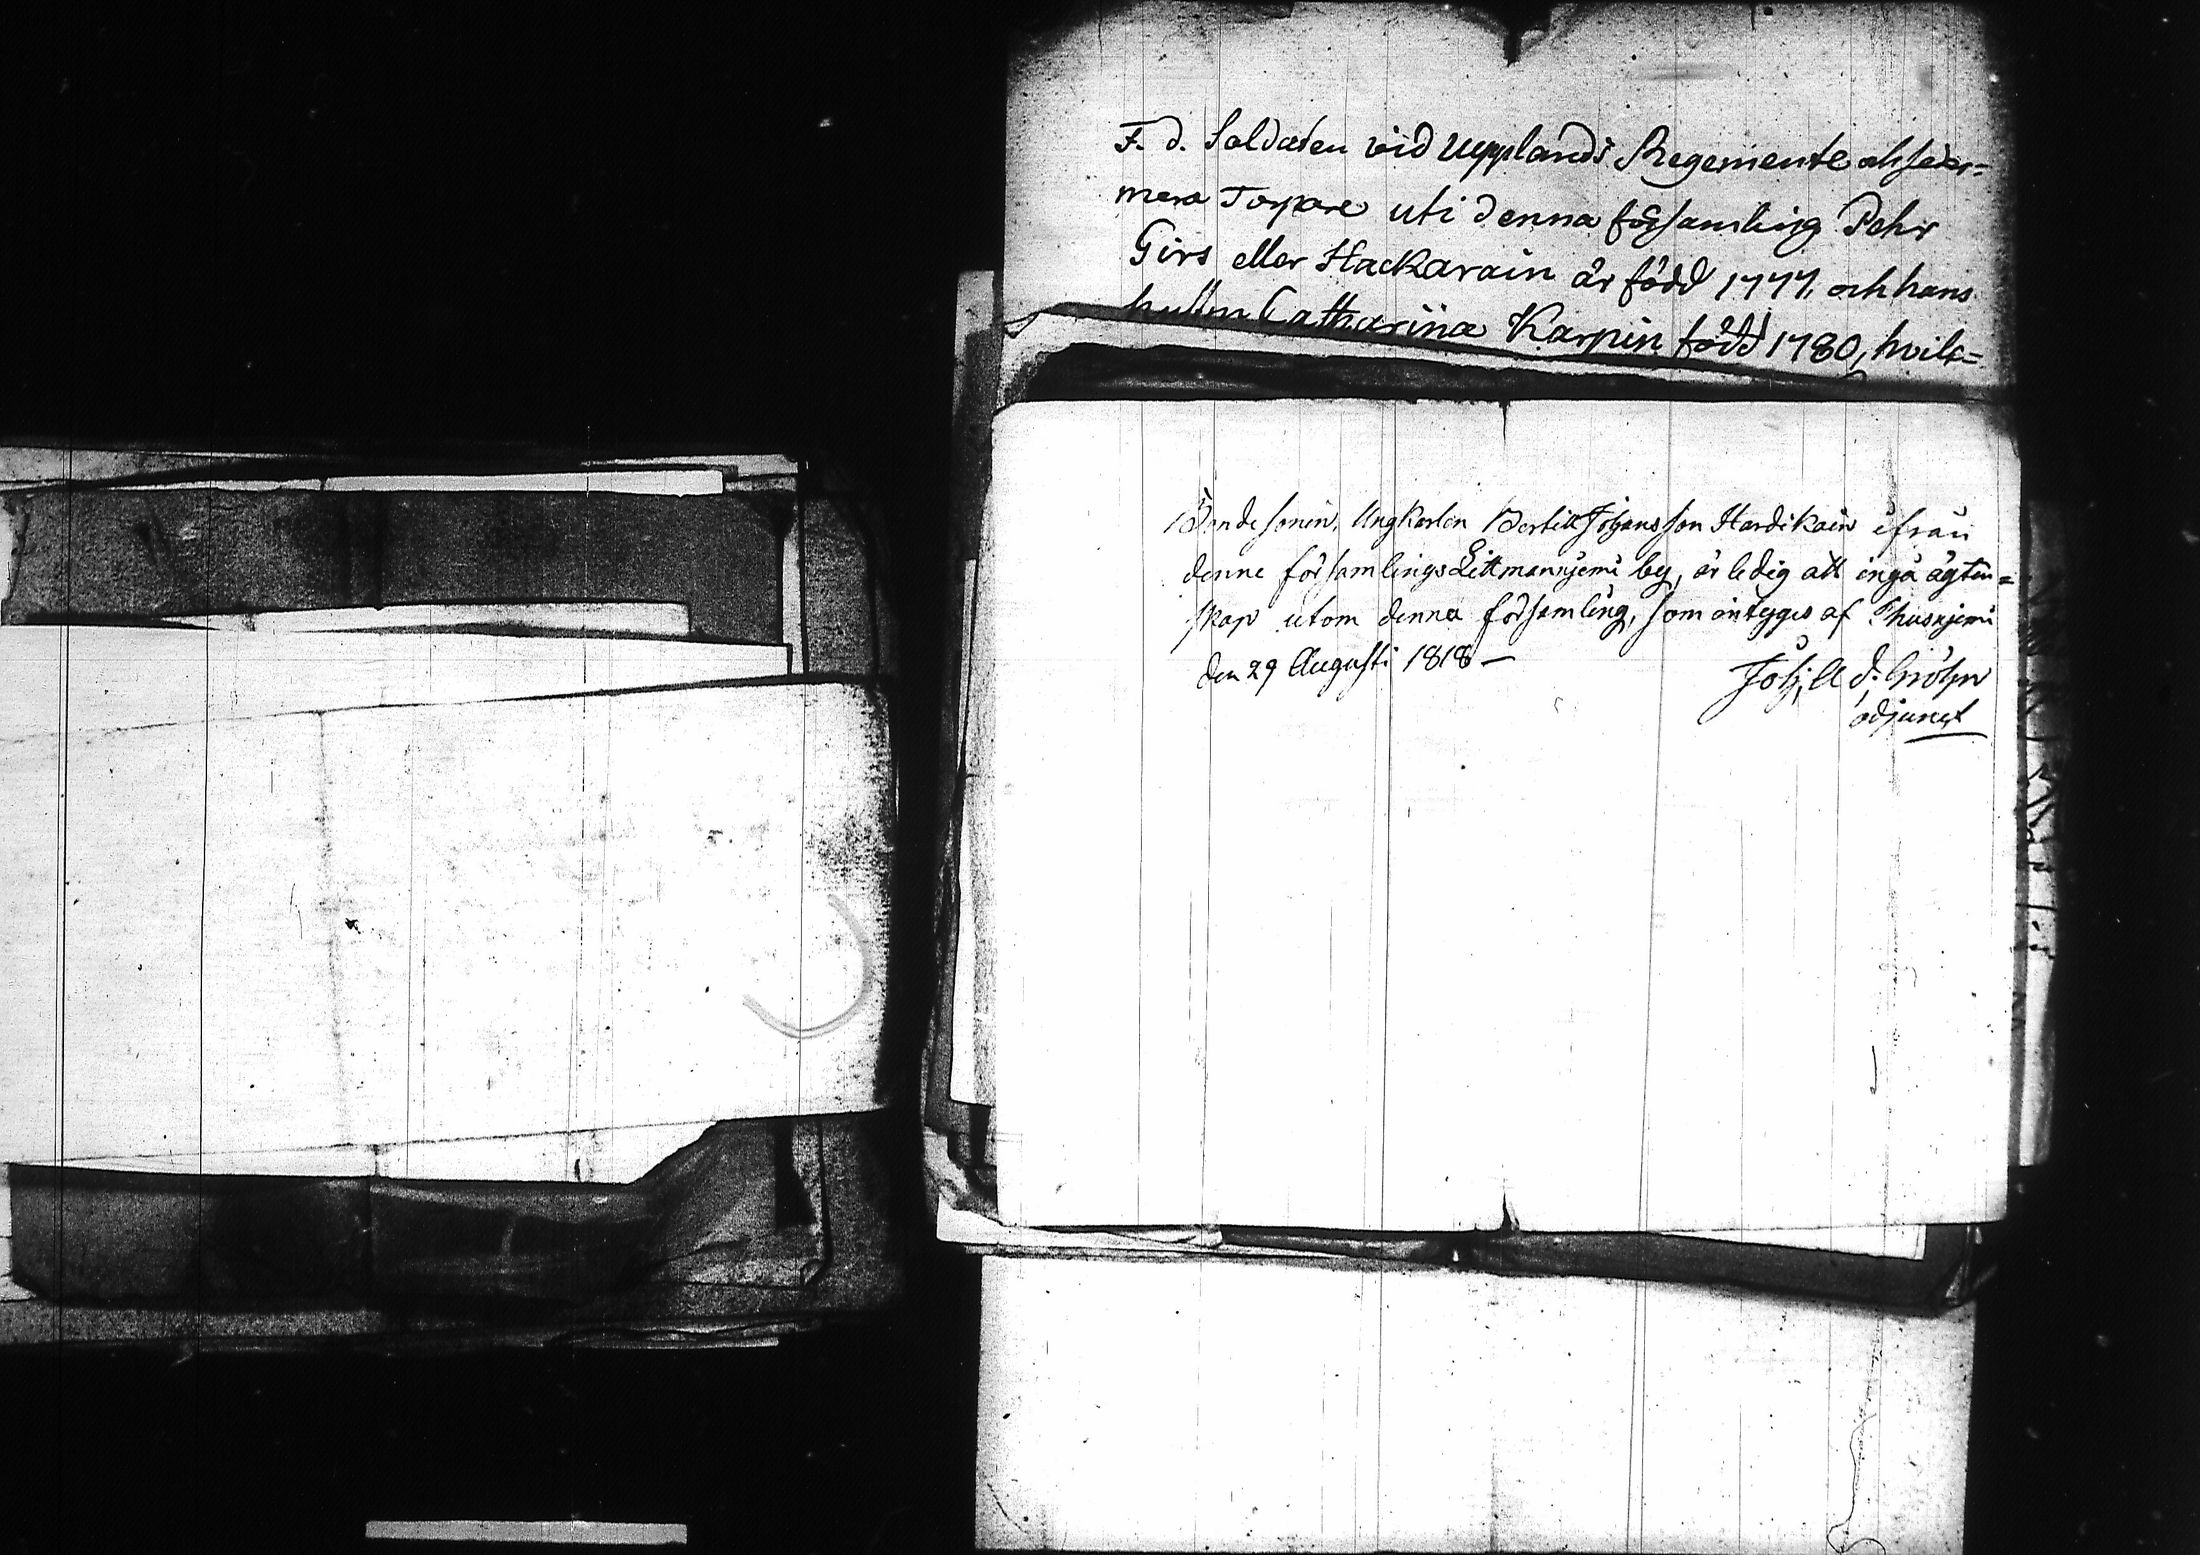 F. d. Soldaten vid Upplands Regemente och seder=
mera Torpare uti denna församling Pehr
Girs eller Hackarain är född 1777, och hans
hustru Catharina Karpin född 1780, hvilc=
Bondesonen, Ungkarlen Bertill Johansson Hardikain ifrån
denne församlings Littmaniemi by, är ledig att ingå ägten=
skap utom denna församling, som intygas af Thusniemi
den 29 Augusti 1818 —
Joh, Ad:
adjunct